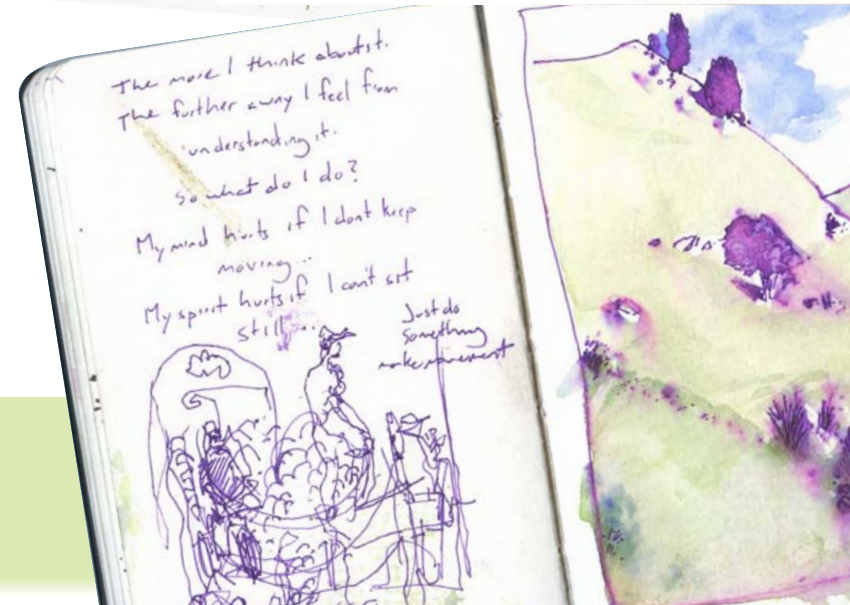 The more I think about it.
The further away I feel from
understanding it.
So what do I do?
My mind hurts if I dont keep
moving...
My spirit hurts if I can't sit
still...
Just do
Something
make movement